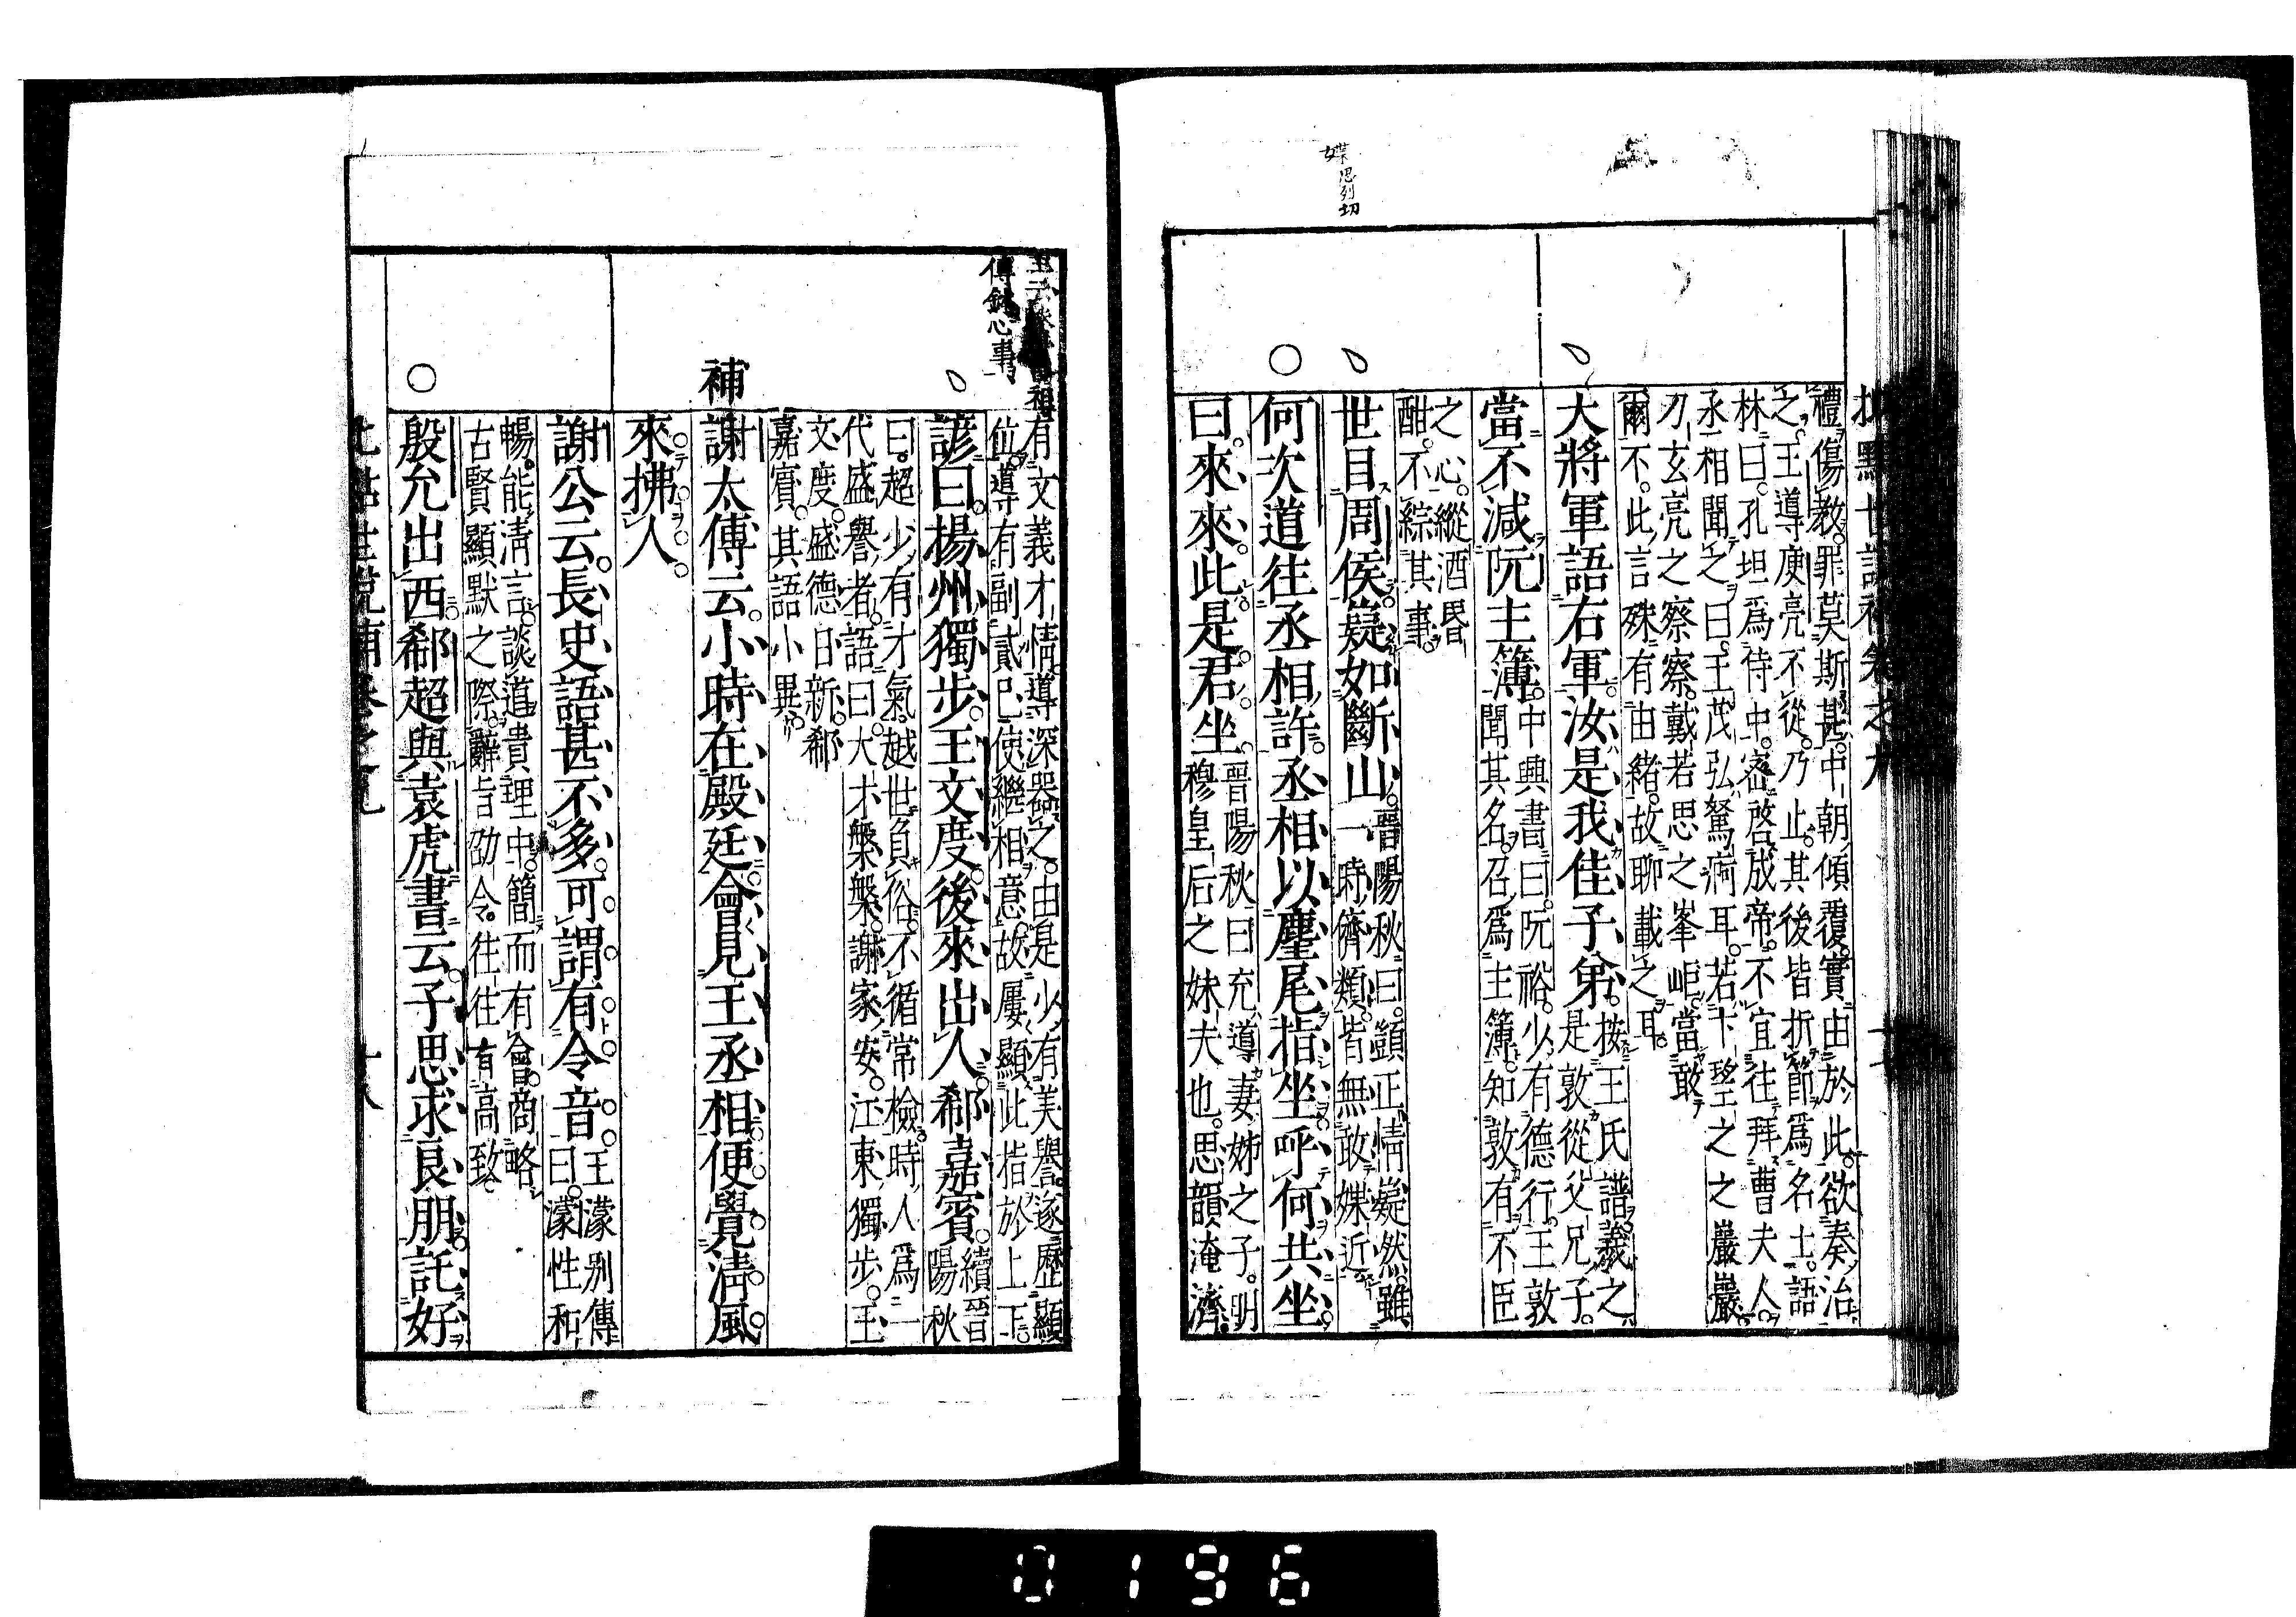 媟思列切
禮傷教罪莫斯甚中朝傾覆實由於此欲奏治
之王導庾亮不從乃止其後皆折節爲名士語
林曰孔坦爲侍中密啓成帝不宜往拜曹夫人
丞相聞之曰王茂弘駑痾耳若卞望之之巖巖
刀玄亮之察察戴若思之峯岠當敢
爾不此言殊有由緒故聊載之耳
大將軍語右軍汝是我佳子弟
按王氏譜羲之
是敦從父兄子
當不減阮主簿
中興書曰阮裕少有德行王敦
聞其名召爲主簿知敦有不臣
之心縱酒昬
酣不綜其事
世目周侯嶷如斷山
晉陽秋曰顗正情嶷然雖
一時儕類皆無敢媟近
何次道往丞相許丞相以麈尾指坐呼何共坐
曰來來此是君坐
晉陽秋曰充導妻姊之子明
穆皇后之妹夫也思韻淹濟
有文義才情導深器之由是少有美譽遂歷顯
位導有副貳己使繼相意故屢顯此指於上下
傳鉢心事
諺曰揚州獨步王文度後來出人郗嘉賓
續晉
陽秋
曰超少有才氣越世負俗不循常檢時人爲一
代盛譽者語曰大才槃槃謝家安江東獨步王
文度盛德日新郗
嘉賓其語小異
補
謝太傅云小時在殿廷會見王丞相便覺清風
來拂人
謝公云長史語甚不多可謂有令音
王濛别傳
曰濛性和
暢能清言談道貴理中簡而有會商略
古賢顯默之際辭旨劭令往往有高致
殷允出西郗超與袁虎書云子思求良朋託好